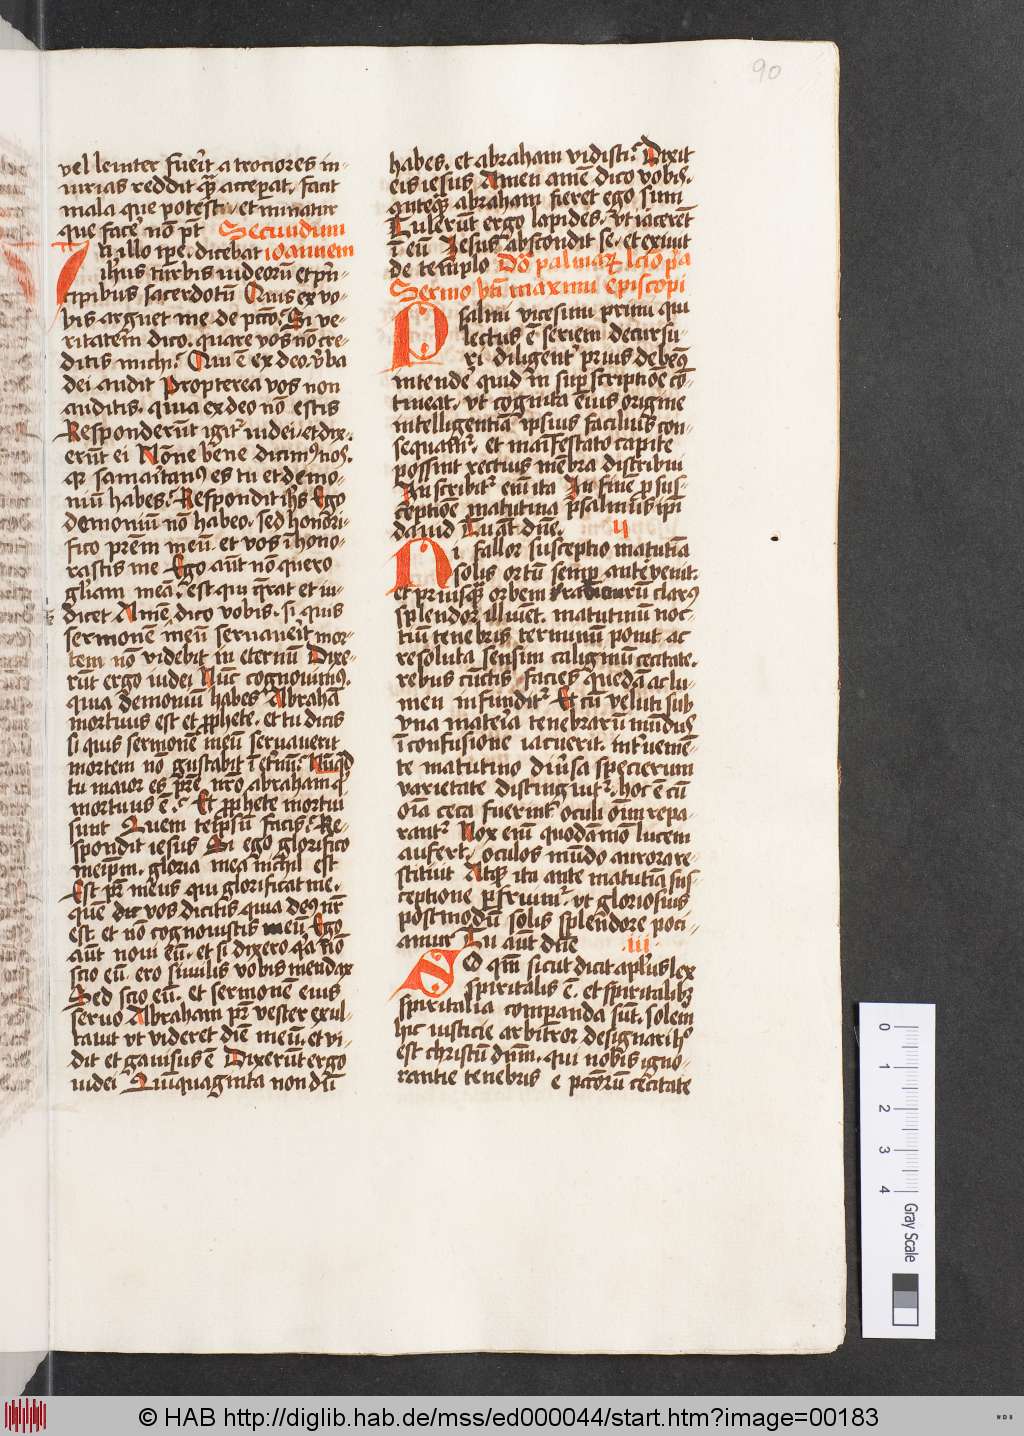 90
vel leuiter fuerit atrociores in-
iurias reddit qͣ acceperat. facit
mala que potest. et minatur
que facere nō pt Secundum
In illo tp̄e. dicebat ioannem
ih̄us turbis iudeorū et prin-
cipibus sacerdotū Quis ex vo-
bis arguet me de pctō. Si ve-
ritatem dico. quare vos nō cre-
ditis michi. Qui ē ex deo. v̄ba
dei audit Propterea vos non
auditis. quia ex deo nō estis
Responderūt igit iudei. et dix-
erūt ei Nōne bene dicimꝰ nos.
qꝛ samaritanꝰ es tu et demo-
niū habes. Respondit ih̄s Ego
demoniū nō habeo. sed honori-
fico prēm meū. et vos ī hono-
rastis me Ego aūt nō quero
glīam meā. est qui q̄rat et iu-
dicet Amē dico vobis. si quis
sermonem meū seruauerit mor-
tem nō videbit in eternū Dixe-
rūt ergo iudei Nūc cognouimꝰ.
quia demoniū habes Abrahā
mortuus est et p̄phete. et tu dicis
si quis sermonē meū seruauerit
mortem nō gustabit ī et̄nū. Nūqd
tu maior es p̄re nr̄o abraham q̄
mortuus ē. Et p̄phete mortui
sunt Quem teip̄sū facis. Re-
spondit iesus Si ego glorifico
meip̄m. gloria mea nichil est
Est pr̄ meus qui glorificat me.
quē vos dicitis quia deꝰ nr̄
est et nō cognouistis eū Ego
aūt noui eū. et si dixero qꝛa nō
scio eū. ero similis vobis mendax
Sed scio eū. et sermonē eius
seruo Abraham pr̄ vester exul-
tauit vt videret diē meū. et vi-
dit et gauisus ē Dixerūt ergo
iudei Quīquaginta non dū
habes. et abraham vidisti. Dixit
eis iesus Amen amē dico vobis.
anteqͣ abraham fieret ego sum
Tulerūt ergo lapides. vt iacerēt
ī eū Iesus abscondit se. et exiuit
de templo Dō palmaꝝ lc̄io p̄a
Sermo bt̄i maximi episcopi
Psalmi vicesimi primi qui
lectus ē seriem decursu-
ri diligent̄ prius debemꝰ
intendē quid in sup̄scriptiōe cō-
tineat. vt cognita eius origine
intelligentiā ipsius facilius con-
sequamr. et manifestato capite
possint rectius mēbra distribui
Inscribit̄ eni ita In finē p̄ sus-
ceptiōe matutina psalmus ip̄i
dauid Tu aūt dn̄e. ii
Ni fallor susceptio matutīa
solis ortū semp̄ anteuenit.
et priusqͣ orbem terrarū clarꝰ
splendor illuiet. matutinū noc-
tiū tenebris terminū ponit ac
resoluta sensim caliginū cecitate.
rebus cūctis facies quedā ac lu-
men infundit̄ Et cū veluti sub
vna materia tenebrarū mundus
ī confusione iacuerit. int̄uenien-
te matutino diu̅sa specierum
varietate distinguit̄. hoc ē cū
oīa ceca fuerint oculi oīm repa-
rant̄ Nox eni quodāmō lucem
aufert. oculos mūdo aurora re-
stituit Atqꝫ ita ante matutīa sus-
ceptione p̄fruimr. vt gloriosius
postmodū solis splendore poci-
amur Tu aūt dn̄e iii
Sed qm̄ sicut dicit apl̄us lex
spiritalis ē. et spiritalibꝫ
spiritalia comparanda sūt. solem
hūc iusticie arbitror designari hͦ
est christū dn̄m. qui nobis igno-
rantie tenebris e pctōrū cecitate
0 1 2 3 4
Gray Scale
© HAB http://diglib.hab.de/mss/ed000044/start.htm?image=00183